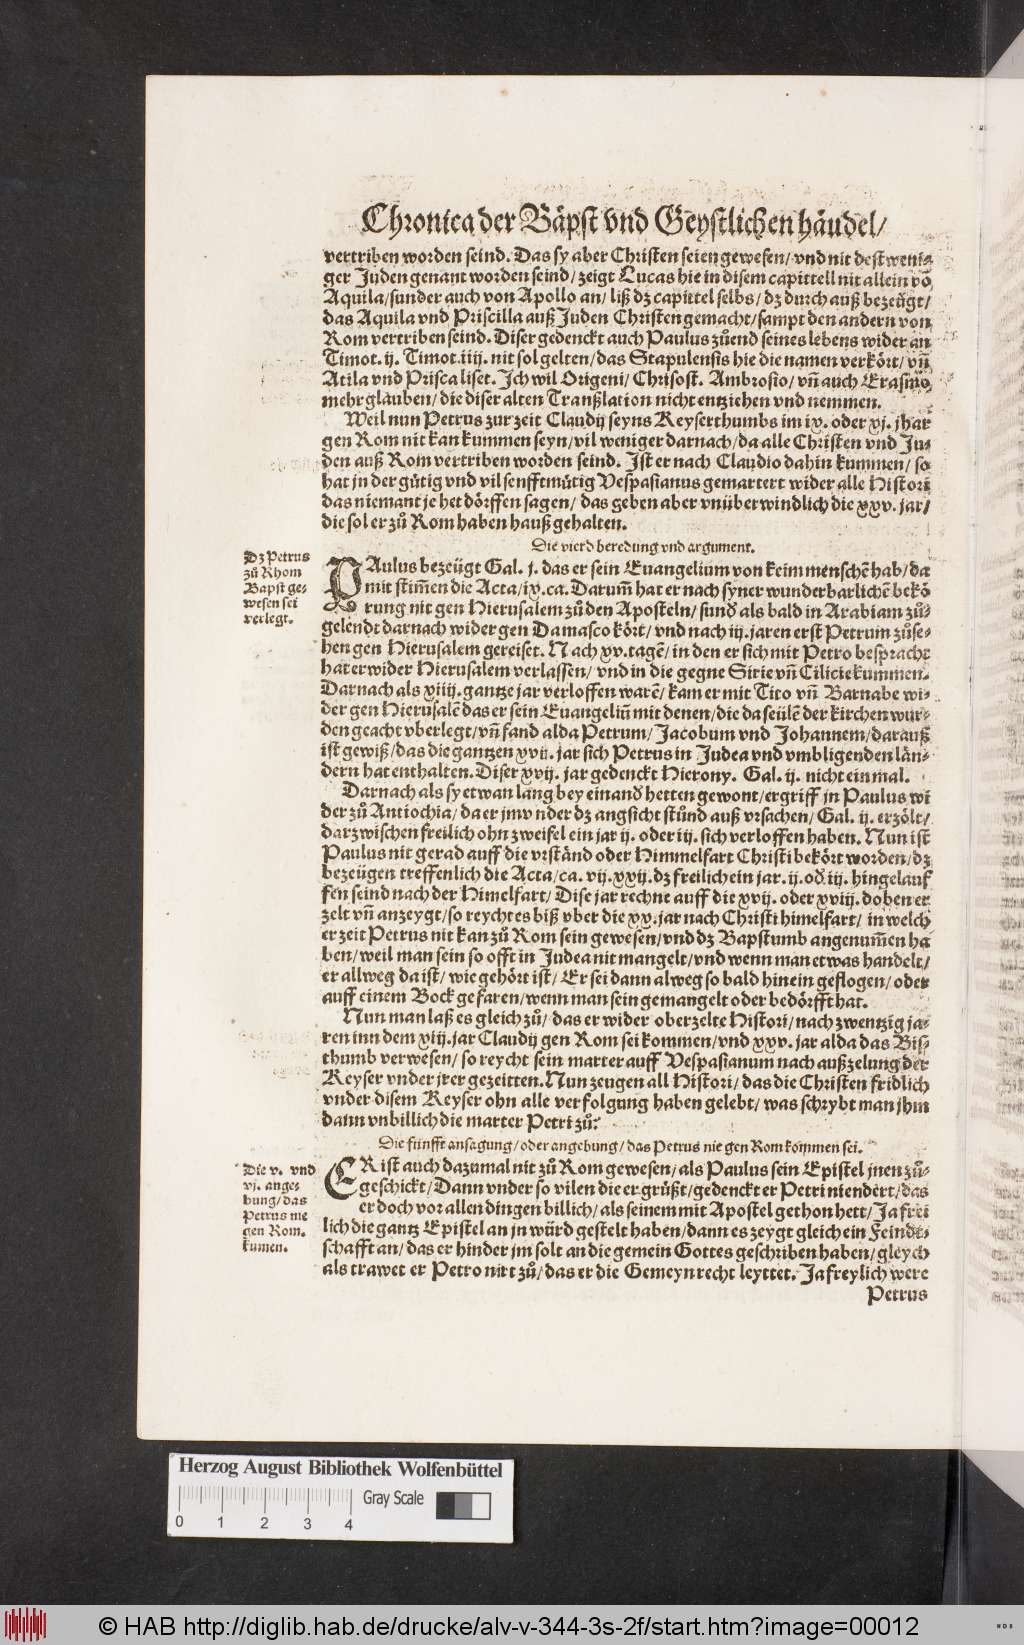 Chronica der Bäpst vnd Geystlichen händel/
vertriben worden seind. Das sy aber Christen seien gewesen/ vnd nit dest weni⸗
ger Juden genant worden seind/ zeigt Lucas hie in disem capittell nit allein võ
Aquila/ sunder auch von Apollo an/ liß dz capittel selbs/ dz durch auß bezeügt/
das Aquila vnd Priscilla auß Juden Christen gemacht/ sampt den andern von
Rom vertriben seind. Diser gedenckt auch Paulus zů end seines lebens wider an
Timot. ij. Timot. iiij. nit sol gelten/ das Stapulensis hie die namen verkört/ vñ
Atila vnd Prisca liset. Jch wil Origeni/ Chrisost. Ambrosio/ vñ auch Erasmo
mehr glauben/ die diser alten Tranßlation nicht entziehen vnd nemmen.
Weil nun Petrus zur zeit Claudij seyns Keyserthumbs im ix. oder xj. jhar
gen Rom nit kan kummen seyn/ vil weniger darnach/ da alle Christen vnd Ju⸗
den auß Rom vertriben worden seind. Jst er nach Claudio dahin kummen/ so
hat jn der gütig vnd vil senfftmütig Vespasianus gemartert wider alle Histori
das niemant je het dörffen sagen/ das geben aber vnüberwindlich die xxv. jar/
die sol er zů Rom haben hauß gehalten.
Die vierd beredung vnd argument.
Dz Petrus
zů Rhom
Bapst ge⸗
wesen sei
verlegt.
PAulus bezeügt Gal. j. das er sein Euangelium von keim menschẽ hab/ da
mit stim̃en die Acta/ ix. ca. Darum̃ hat er nach syner wunderbarlichẽ bekö
rung nit gen Hierusalem zů den Aposteln/ sund̃ als bald in Arabiam zů⸗
gelendt darnach wider gen Damasco kört/ vnd nach iij. jaren erst Petrum zůse⸗
hen gen Hierusalem gereiset. Nach xv. tagẽ/ in den er sich mit Petro bespracht
hat er wider Hierusalem verlassen/ vnd in die gegne Sirie vñ Cilicie kummen.
Darnach als xiiij. gantze jar verloffen warẽ/ kam er mit Tito vñ Barnabe wi⸗
der gen Hierusalẽ das er sein Euangeliũ mit denen/ die da seülẽ der kirchen wur⸗
den geacht vberlegt/ vñ fand alda Petrum/ Jacobum vnd Johannem/ darauß
ist gewiß/ das die gantzen xvij. jar sich Petrus in Judea vnd vmbligenden län⸗
dern hat enthalten. Diser xvij. jar gedenckt Hierony. Gal. ij. nicht ein mal.
Darnach als sy etwan lang bey einand̃ hetten gewont/ ergriff jn Paulus wi
der zů Antiochia/ da er jm vnder dz angsicht stůnd auß vrsachen/ Gal. ij. erzölt/
darzwischen freilich ohn zweifel ein jar ij. oder iij. sich verloffen haben. Nun ist
Paulus nit gerad auff die vrständ oder Himmelfart Christi bekört worden/ dz
bezeügen treffenlich die Acta/ ca. vij. xxij. dz freilich ein jar. ij. od̃. iij. hingelauf
fen seind nach der Himelfart/ Dise jar rechne auff die xvij. oder xviij. doben er
zelt vñ anzeygt/ so reycht es biß vber die xx. jar nach Christi himelfart/ in welch
er zeit Petrus nit kan zů Rom sein gewesen/ vnd dz Bapstumb angenum̃en ha
ben/ weil man sein so offt in Judea nit mangelt/ vnd wenn man etwas handelt/
er allweg da ist/ wie gehört ist/ Er sei dann alweg so bald hinein geflogen/ oder
auff einem Bock gefaren/ wenn man sein gemangelt oder bedörfft hat.
Nun man laß es gleich zů/ das er wider oberzelte Histori/ nach zwentzig ja⸗
ren inn dem xiij. jar Claudij gen Rom sei kommen/ vnd xxv. jar alda das Biß
thumb verwesen/ so reycht sein marter auff Vespasianum nach außzelung der
Keyser vnder jrer gezeitten. Nun zeugen all Histori/ das die Christen fridlich
vnder disem Keyser ohn alle verfolgung haben gelebt/ was schrybt man jhm
dann vnbillich die marter Petri zů?
Die fünfft ansagung/ oder angebung/ das Petrus nie gen Rom kommen sei.
Die v. vnd
vj. ange⸗
bung/ das
Petrus nie
gen Rom.
kumen.
ER ist auch dazumal nit zů Rom gewesen/ als Paulus sein Epistel jnen zů⸗
geschickt/ Dann vnder so vilen die er grüßt/ gedenckt er Petri niendert/ das
er doch vor allen dingen billich/ als seinem mit Apostel gethon hett/ Ja frei
lich die gantz Epistel an jn würd gestelt haben/ dann es zeygt gleich ein Feindt⸗
schafft an/ das er hinder jm solt an die gemein Gottes geschriben haben/ gleych
als trawet er Petro nitt zů/ das er die Gemeyn recht leyttet. Ja freylich were
Petrus
Herzog August Bibliothek Wolfenbüttel
Gray Scale
0 1 2 3 4
© HAB http://diglib.hab.de/drucke/alv-v-344-3s-2f/start.htm?image=00012